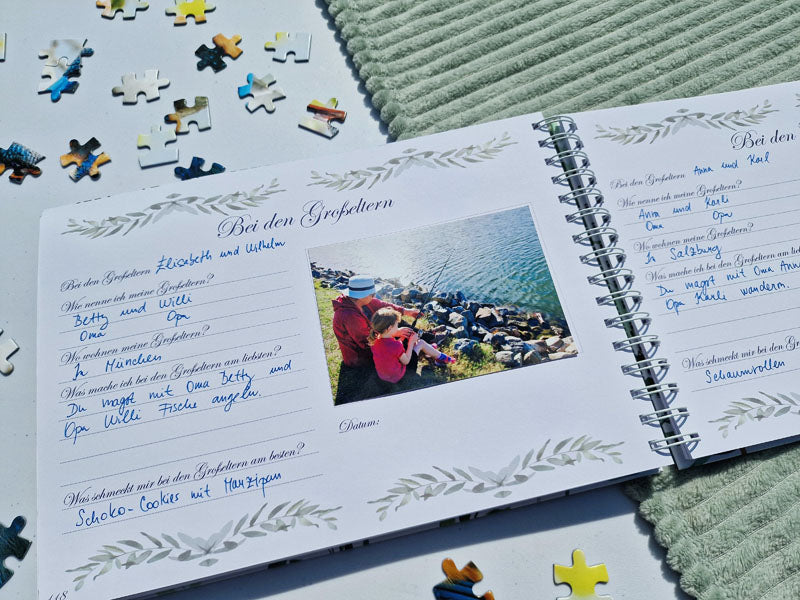 Bei den Großeltern
Bei den Großeltern Elisabeth und Wilhelm
Wie nenne ich meine Großeltern?
Betty und Willi
Oma Opa
Wo wohnen meine Großeltern?
In München
Was mache ich bei den Großeltern am liebsten?
Du magst mit Oma Betty und
Opa Willi Fische angeln.
Was schmeckt mir bei den Großeltern am besten?
Schoko-Cookies mit Marzipan
Datum:
Bei den
Bei den Großeltern Anna und Karl
Wie nenne ich meine Großeltern?
Anna und Karli
Oma Opa
Wo wohnen meine Großeltern?
In Salzburg
Was mache ich bei den Großeltern am
Du magst mit Oma Anna
Opa Karli wandern.
Was schmeckt mir bei den
Schaumrollen